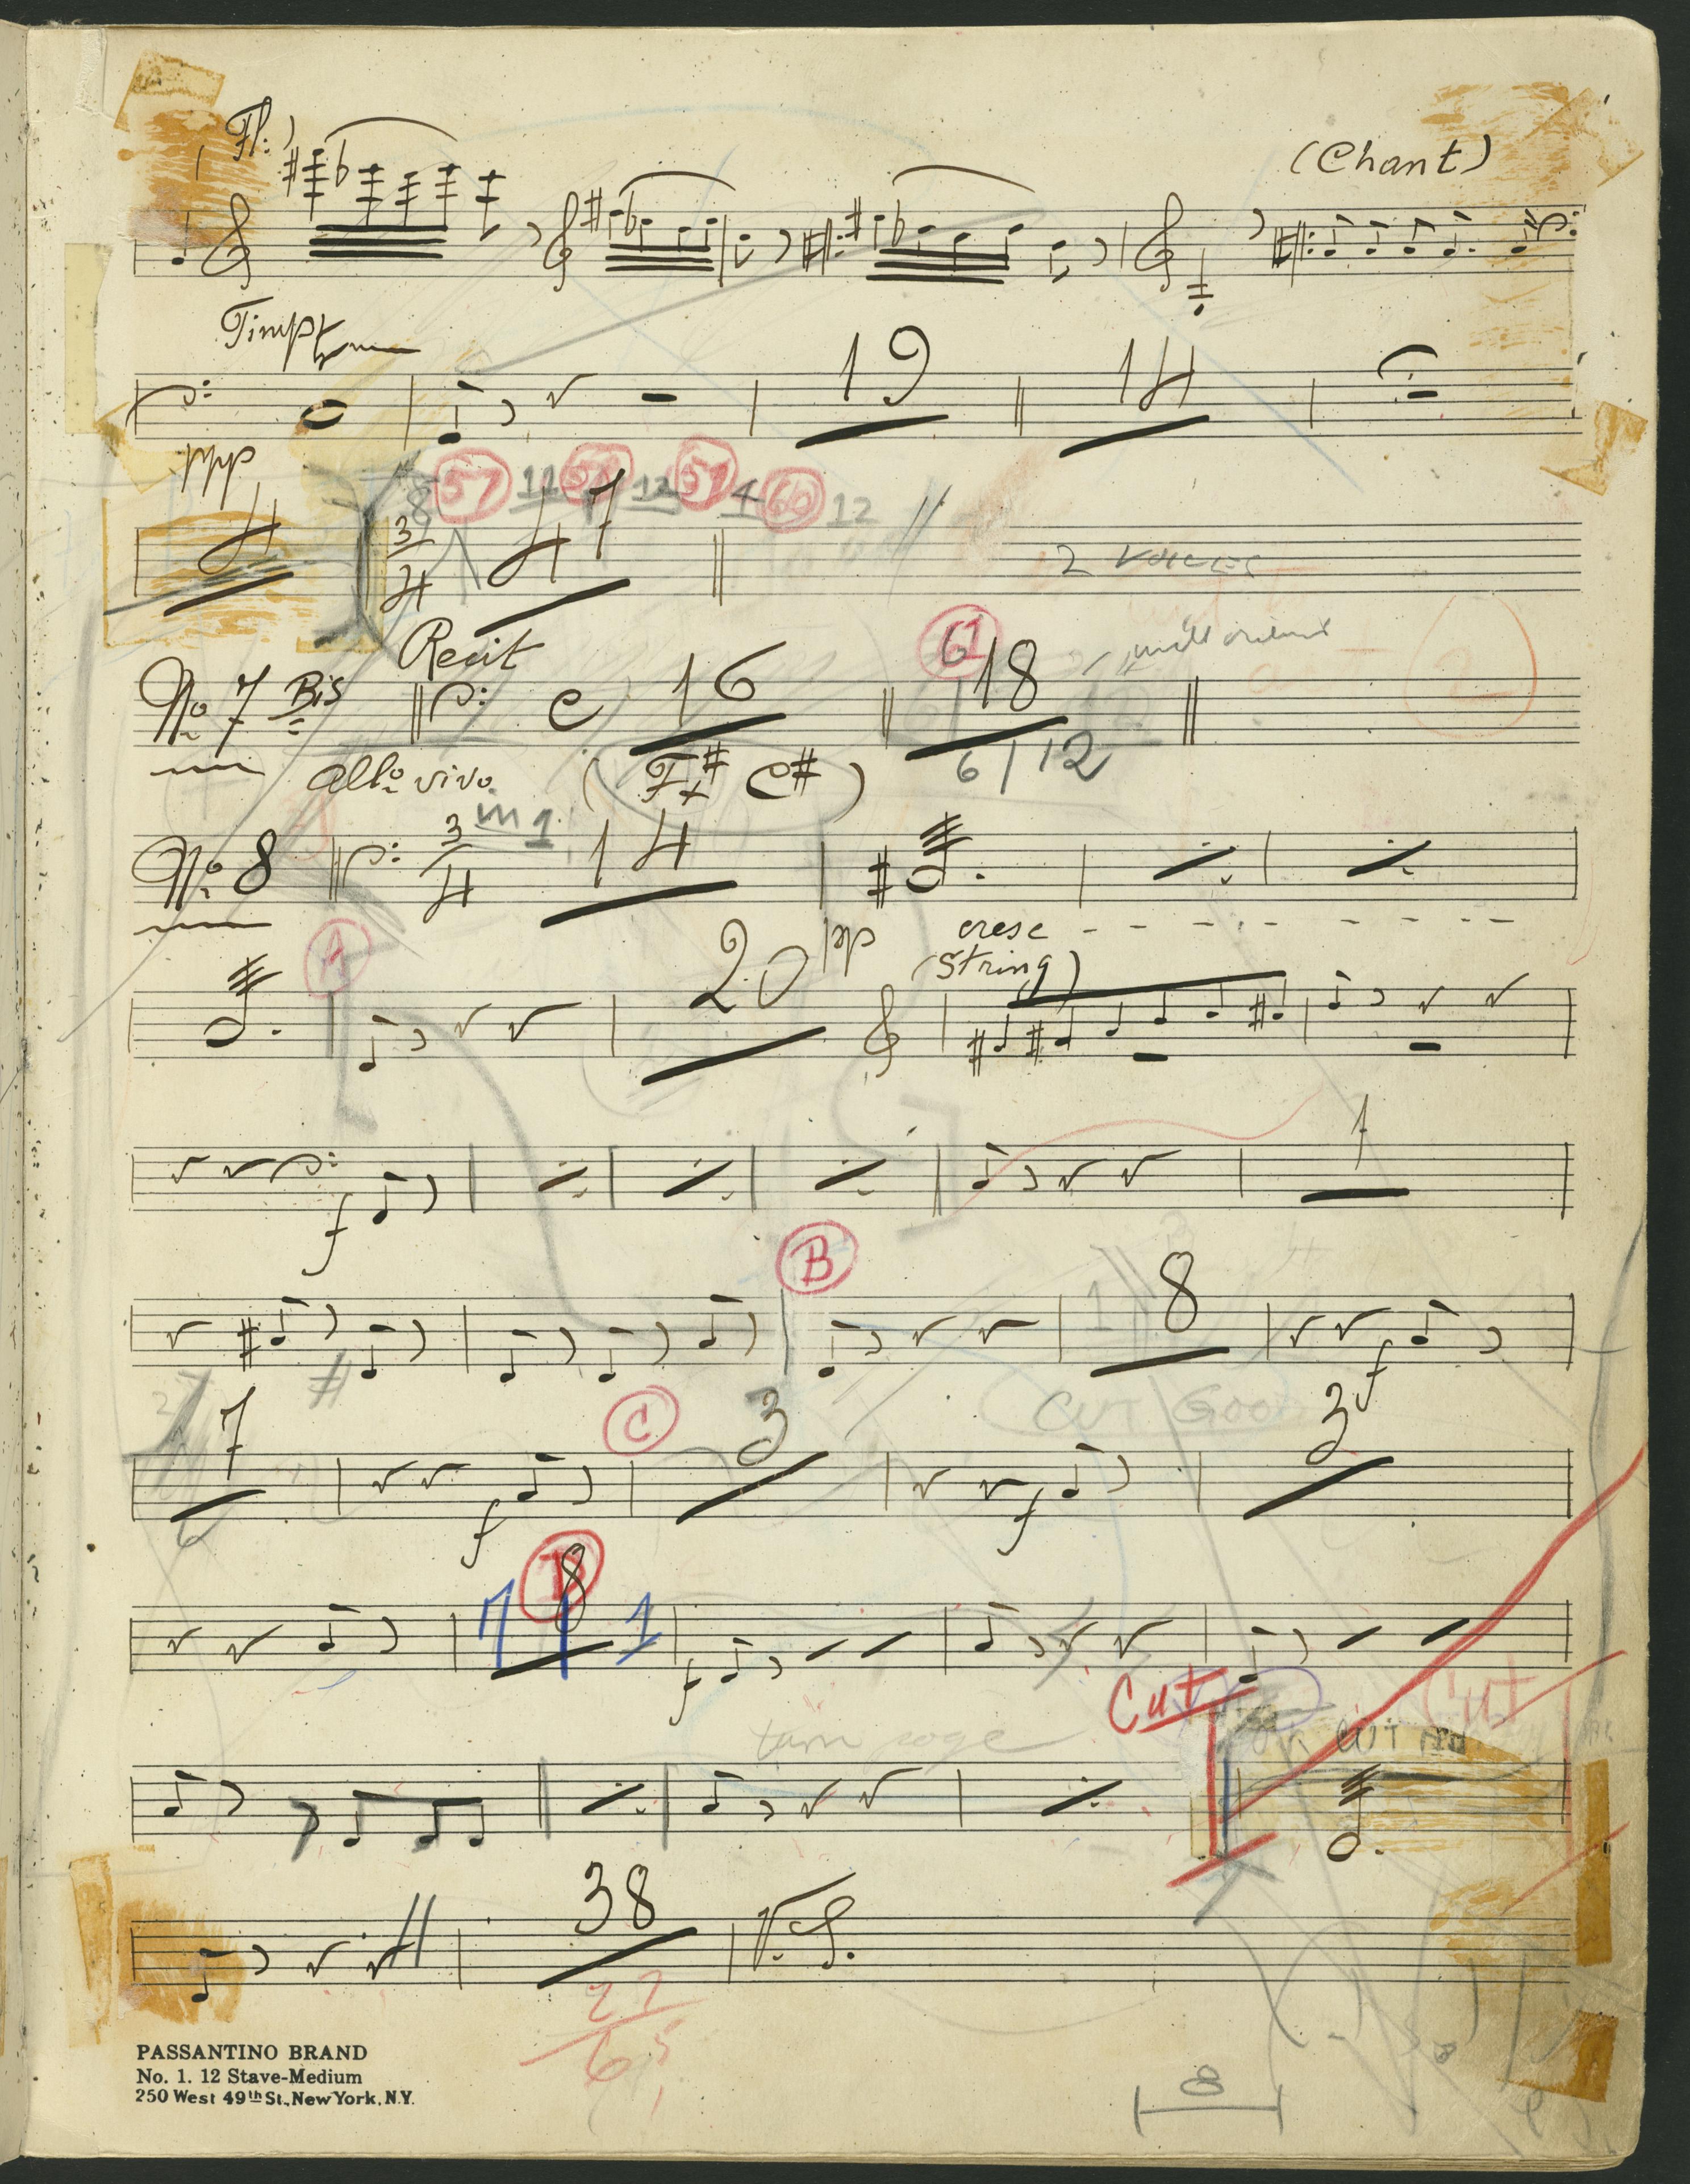 Fl:
(Chant)
Timp
19 14
ppp
57 11 58 12 59 4 60 12
4 3/4 47
2 voices
Recit
61
No 7 Bis C 16 18
6 | 12
Allo vivo (F# C#)
in 1
No 8 3/4 14
pp cresc
A 20 (String)
1
f
B
1 8
f
CUT GOOD
7 C 3 3
6
f f
D
7 8 1
f
Cut Cut
turn page OK CUT
38
V.S.
27
65
PASSANTINO BRAND
No. 1. 12 Stave-Medium
250 West 49th St., New York, N.Y.
8